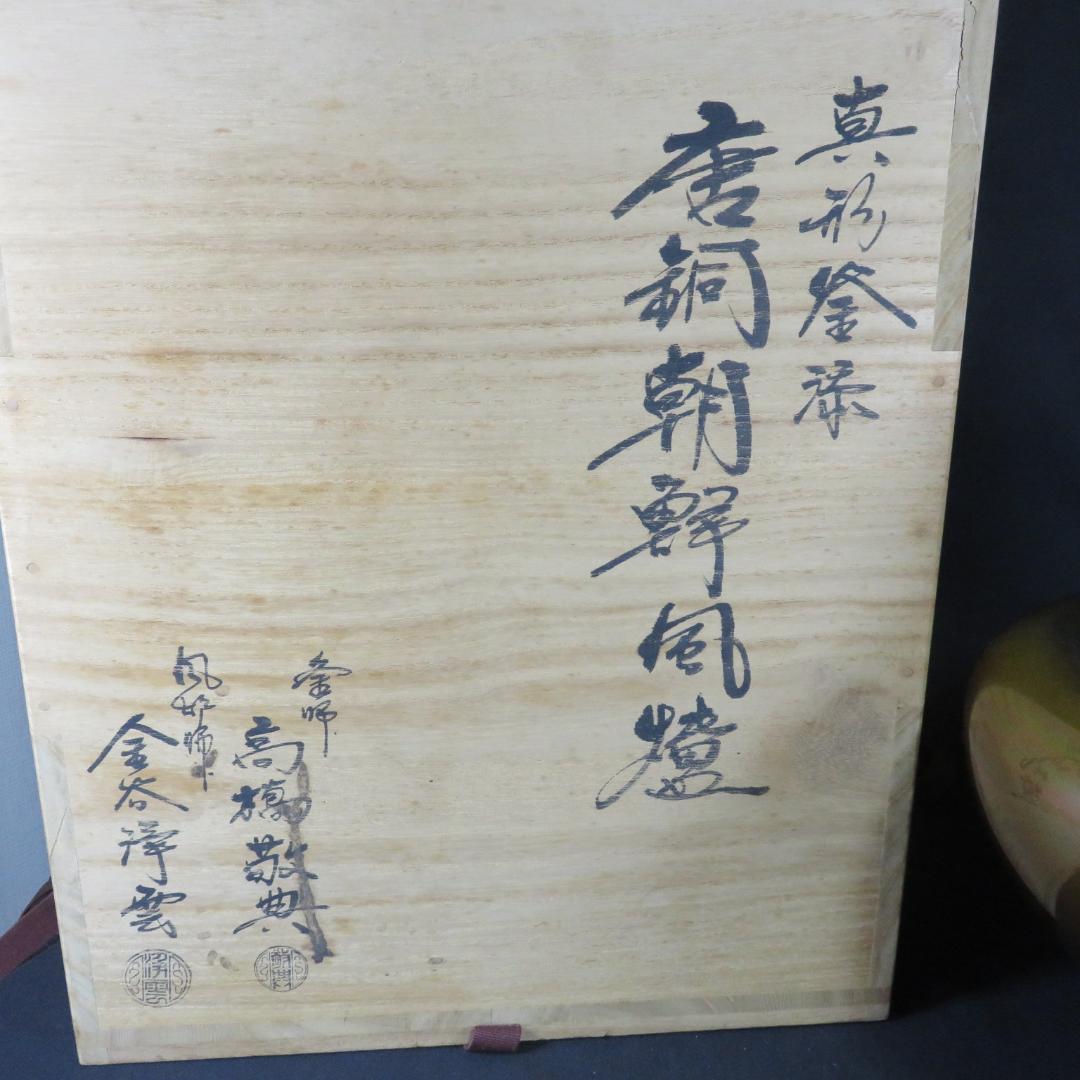 真形釜添
唐銅朝鮮風爐
釜師
高橋敬典
風炉師
金谷浄雲
敬典
浄雲